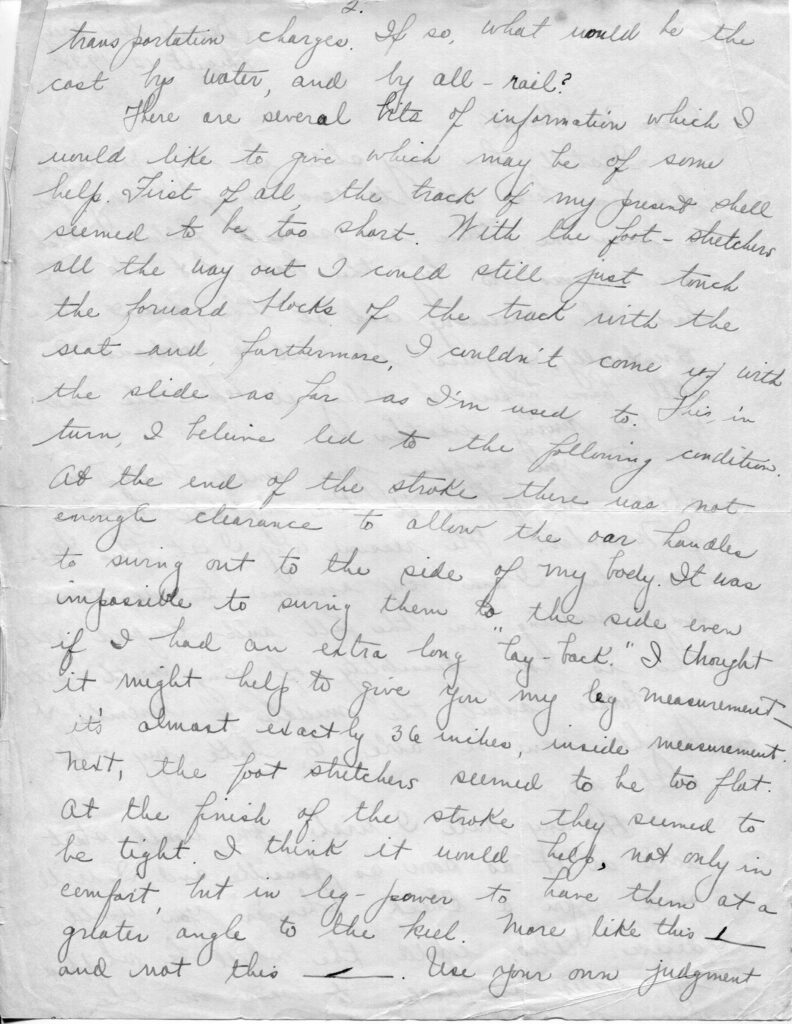 2.
transportation charges. If so, what would be the
cost by water, and by all-rail?
There are several bits of information which I
would like to give which may be of some
help. First of all, the track of my present shell
seemed to be too short. With the foot-stretchers
all the way out I could still just touch
the forward blocks of the track with the
seat and, furthermore, I couldn't come up with
the slide as far as I'm used to. This, in
turn, I believe led to the following condition.
At the end of the stroke there was not
enough clearance to allow the oar handles
to swing out to the side of my body. It was
impossible to swing them to the side even
if I had an extra long "lay-back." I thought
it might help to give you my leg measurement—
it's almost exactly 36 inches, inside measurement.
Next, the foot stretchers seemed to be too flat.
At the finish of the stroke they seemed to
be tight. I think it would help, not only in
comfort, but in leg-power to have them at a
greater angle to the keel. More like this
and not this . Use your own judgment